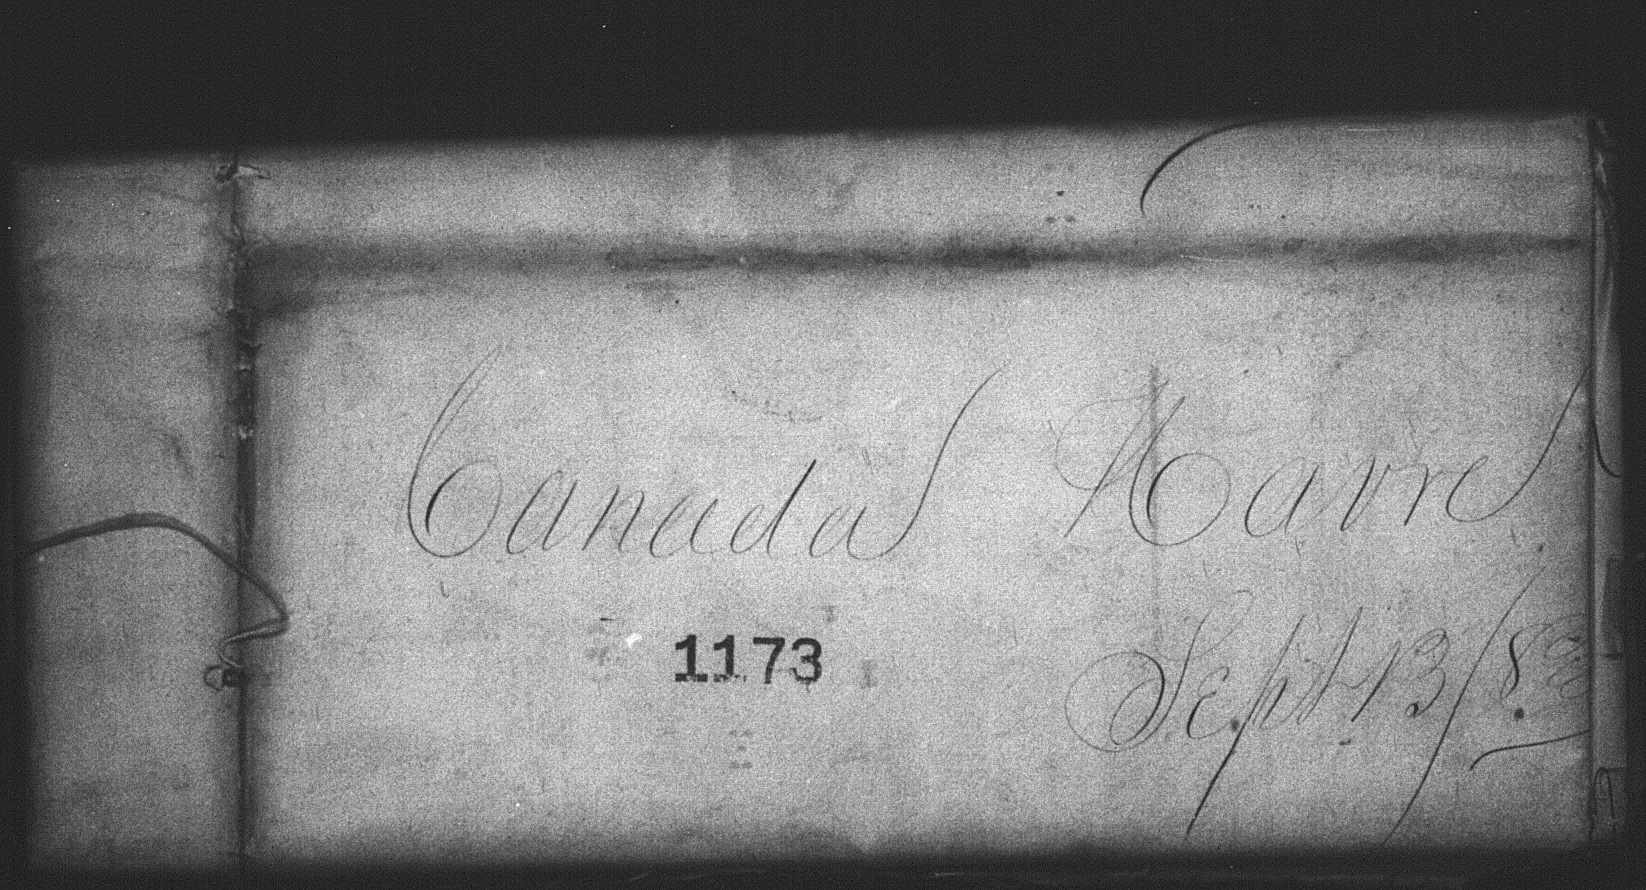 Canada Havre
1173
Sept 13/82